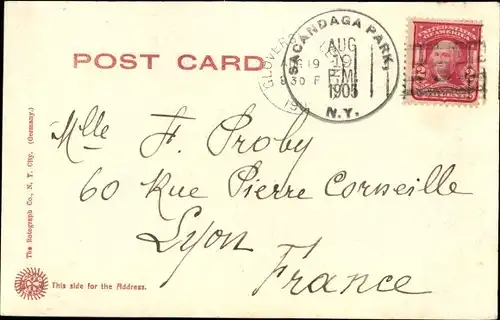 POST CARD
SACANDAGA PARK,
AUG
19
P.M.
1905
N.Y.
GLOVERS
AUG 19
830 P
UNITED STATES
OF AMERICA
Mlle F. Proby
60 Rue Pierre Corneille
Lyon
France
The Rotograph Co., N. Y. City. (Germany.)
This side for the Address.